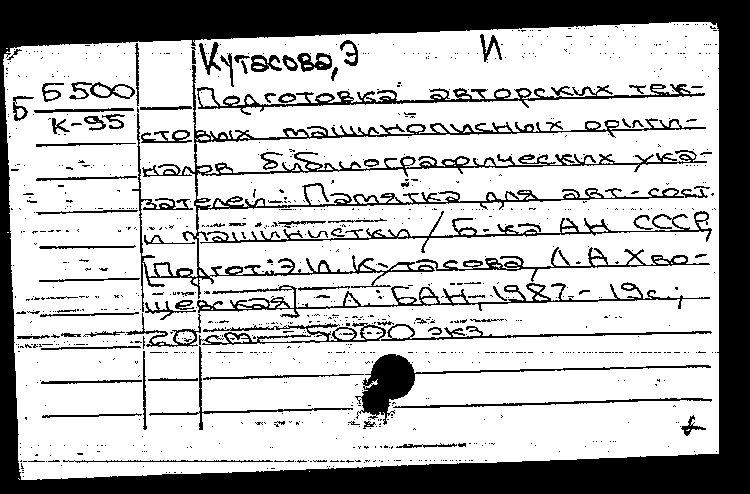 Кутасова, Э И
Б Б 500
К-95
Подготовка авторских тек-
стовых машинописных ориги-
налов библиографических ука-
зателей: Памятка для авт.-сост.
и машинистки / Б-ка АН СССР,
[Подгот.: Э.И. Кутасова, Л.А. Хво-
щевская]. - Л.: БАН, 1987. - 19с.;
20 см. - 5000 экз.